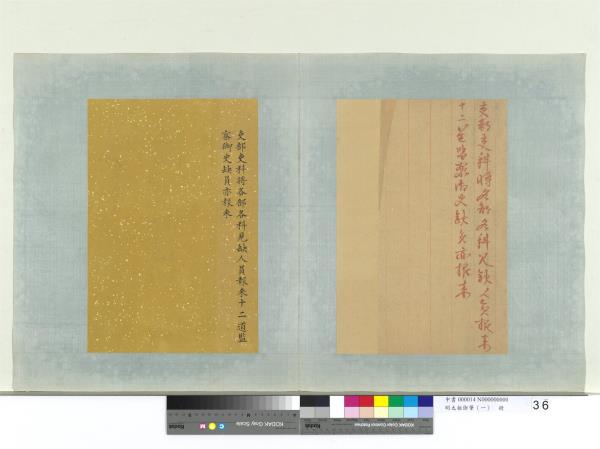 吏部吏科將各部各科見缺人員報來
十二道監察御史缺員亦報來
吏部吏科將各部各科見缺人員報來十二道監
察御史缺員亦報來
KODAK Gray Scale
Kodak
C
M
KODAK Color Control Patches
Kodak
中書 000014 N000000000
明太祖御筆（一） 冊
36